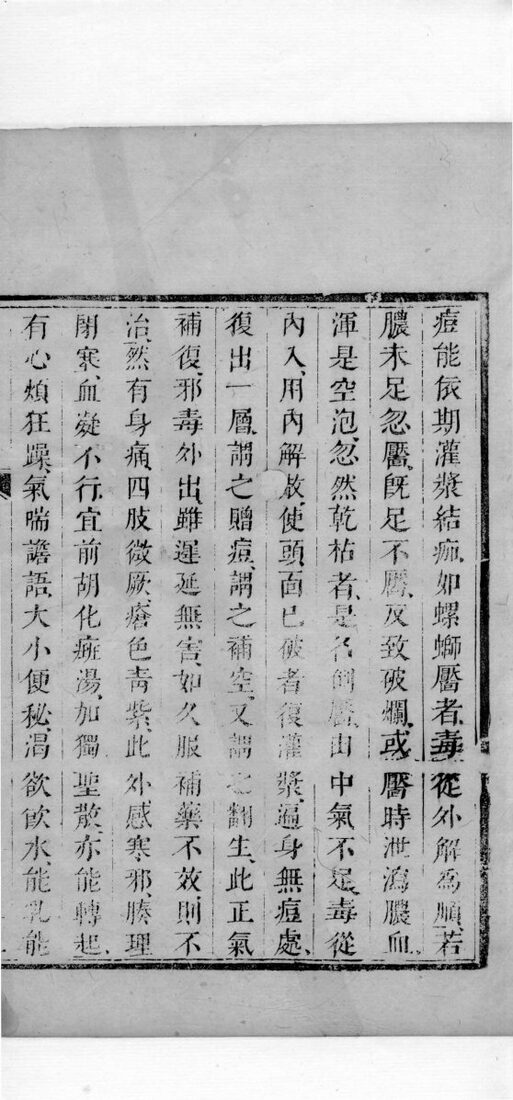 痘能依期灌漿結痂如螺螄靨者毒從外解為順若
膿未足忽靨旣足不靨反致破爛或靨時泄瀉膿血
渾是空泡忽然乾枯者是名倒靨由中氣不足毒從
內入用內解散使頭面已破者復灌漿遍身無痘處
復出一層謂之贈痘謂之補空又謂之翻生此正氣
補復邪毒外出雖遲延無害如久服補藥不效則不
治然有身痛四肢微厥瘡色靑紫此外感寒邪腠理
閉塞血凝不行宜前胡化癍湯加獨聖散亦能轉起
有心煩狂躁氣喘譫語大小便秘渴欲飮水能乳能